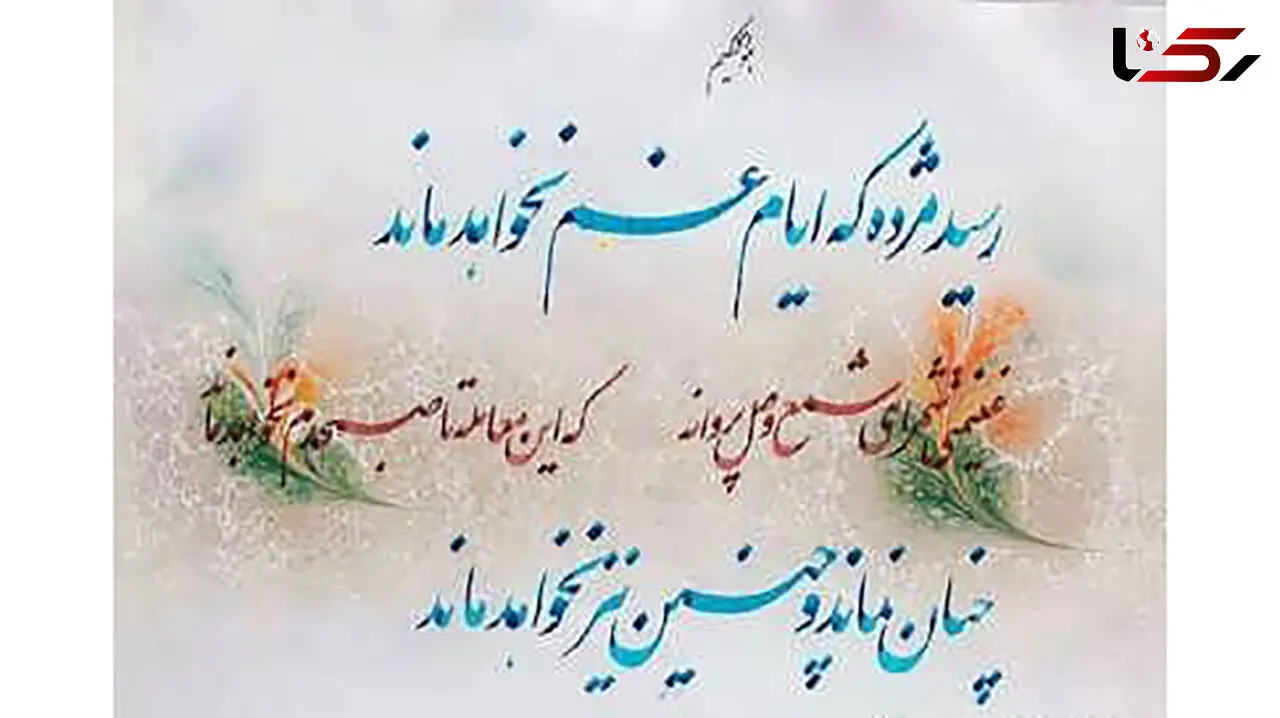 هوالحکیم
رکنا
رسید مژده که ایام غم نخواهد ماند
غنیمتی شمرای شمع وصل پروانه که این معامله تا صبحدم نخواهد ماند
چنان نماند و چنین نیز نخواهد ماند